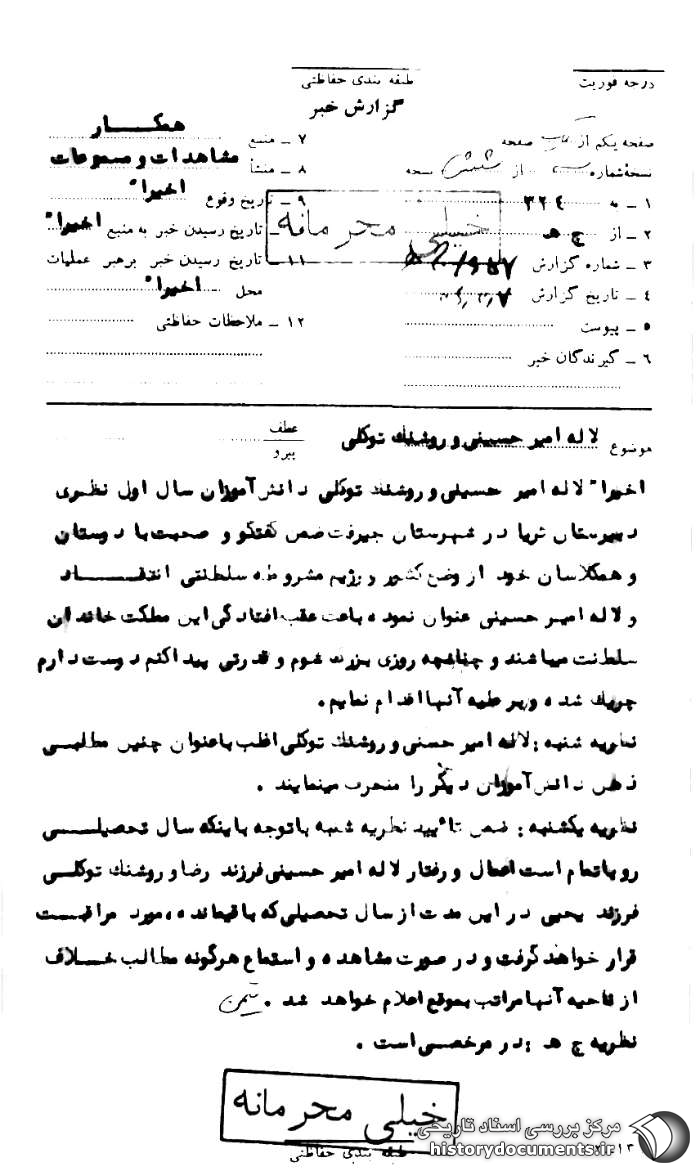 درجه فوریت
طبقه بندی حفاظتی
گزارش خبر
صفحه یکم از یک صفحه
نسخهٔ شماره از شش نسخه
۱ ـ به ۳۲۴
۲ ـ از ج ه‍
۳ ـ شماره گزارش
۴ ـ تاریخ گزارش
۵ ـ پیوست
۶ ـ گیرندگان خبر
۷ ـ منبع همکار
۸ ـ منشأ مشاهدات و مسموعات
۹ ـ تاریخ وقوع اخیرا"
تاریخ رسیدن خبر به منبع اخیرا"
۱۱ ـ تاریخ رسیدن خبر برهبر عملیات
محل اخیرا"
۱۲ ـ ملاحظات حفاظتی
خیلی محرمانه
موضوع لاله امیر حسینی و روشنک توکلی
عطف
پیرو
اخیرا" لاله امیر حسینی و روشنک توکلی دانش آموزان سال اول نظری
دبیرستان ثریا در شهرستان جیرفت ضمن گفتگو و صحبت با دوستان
و همکلاسان خود از وضع کشور و رژیم مشروطه سلطنتی انتقاد
و لاله امیر حسینی عنوان نموده باعث عقب افتادگی این مملکت خاندان
سلطنت میباشند و چنانچه روزی بزرگ شوم و قدرتی پیدا کنم دوست دارم
چریک شده و بر علیه آنها اقدام نمایم.
نظریه شنبه : لاله امیر حسنی و روشنک توکلی اغلب با عنوان چنین مطالبی
ذهن دانش آموزان دیگر را منحرف مینمایند .
نظریه یکشنبه : ضمن تأیید نظریه شنبه با توجه باینکه سال تحصیلی
رو باتمام است اعمال و رفتار لاله امیر حسینی فرزند رضا و روشنک توکلی
فرزند یحیی در این مدت از سال تحصیلی که باقیمانده ، مورد مراقبت
قرار خواهند گرفت و در صورت مشاهده و استماع هرگونه مطالب خلاف
از ناحیه آنها مراتب بموقع اعلام خواهد شد .
نظریه ج ه‍ : در مرخصی است .
خیلی محرمانه
طبقه بندی حفاظتی
مرکز بررسی اسناد تاریخی
historydocuments.ir